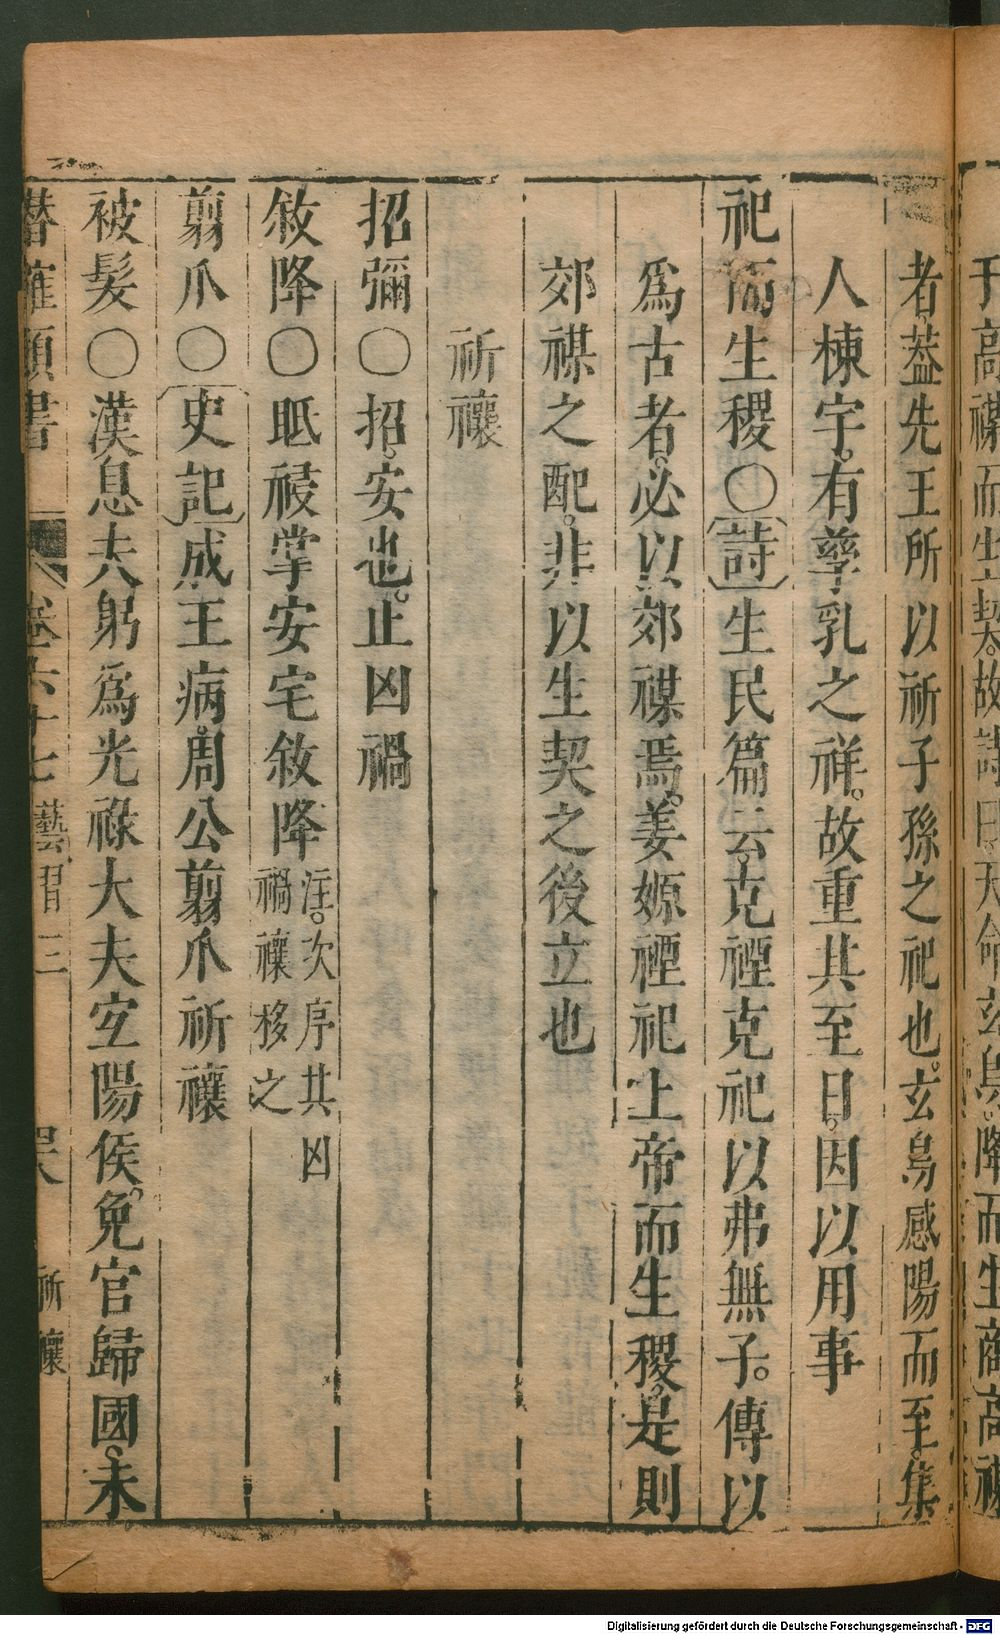 于高禖而生契。故詩曰。天命玄鳥。降而生商高禖
者。葢先王所以祈子孫之祀也。玄鳥感陽而至。集
人棟宇。有孳乳之祥。故重其至日。因以用事
祀禖而生稷○詩生民篇云克禋克祀以弗無子。傳以
爲古者。必以郊禖焉。姜嫄禋祀上帝而生稷。是則
郊禖之配。非以生契之後立也
祈禳
招彌○招。安也。止凶禍
敘降○眡祲掌安宅敘降注。次序其凶
禍禳移之
翦爪○史記成王病。周公翦爪祈禳
被髮○漢息夫躬爲光祿大夫宜陽侯。免官歸國。未
潜確類書 卷六十七 藝習三 四八 祈禳
Digitalisierung gefördert durch die Deutsche Forschungsgemeinschaft - DFG